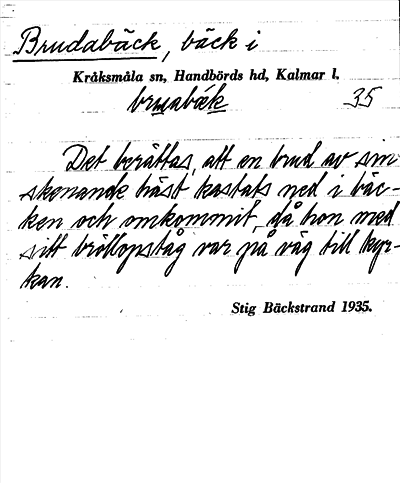 Brudabäck, bäck i
Kråksmåla sn, Handbörds hd, Kalmar l.
35
Det berättas, att en brud av sin
skenande häst kastats ned i bäc-
ken och omkommit, då hon med
sitt bröllopståg var på väg till kyr-
kan.
Stig Bäckstrand 1935.